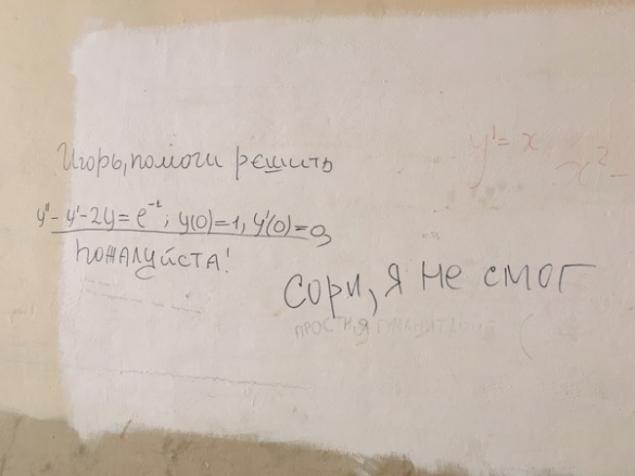 Игорь, помоги решить
y'' - y' - 2y = e⁻ᵗ; y(0)=1, y'(0)=0
пожалуйста!
Сори, я не смог
ПРОСТИ, Я ГУМАНИТАРИЙ (
y' = x
x² -